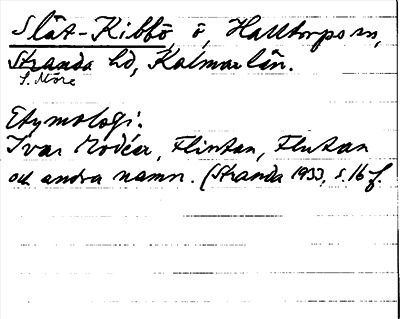 Slät-Kibbö, ö, Halltorps sn,
Stranda hd, Kalmar län.
S. Möre
Etymologi:
Ivar Modéer, Flintan, Flutan
och andra namn. (Stranda 1933, s. 16 f.